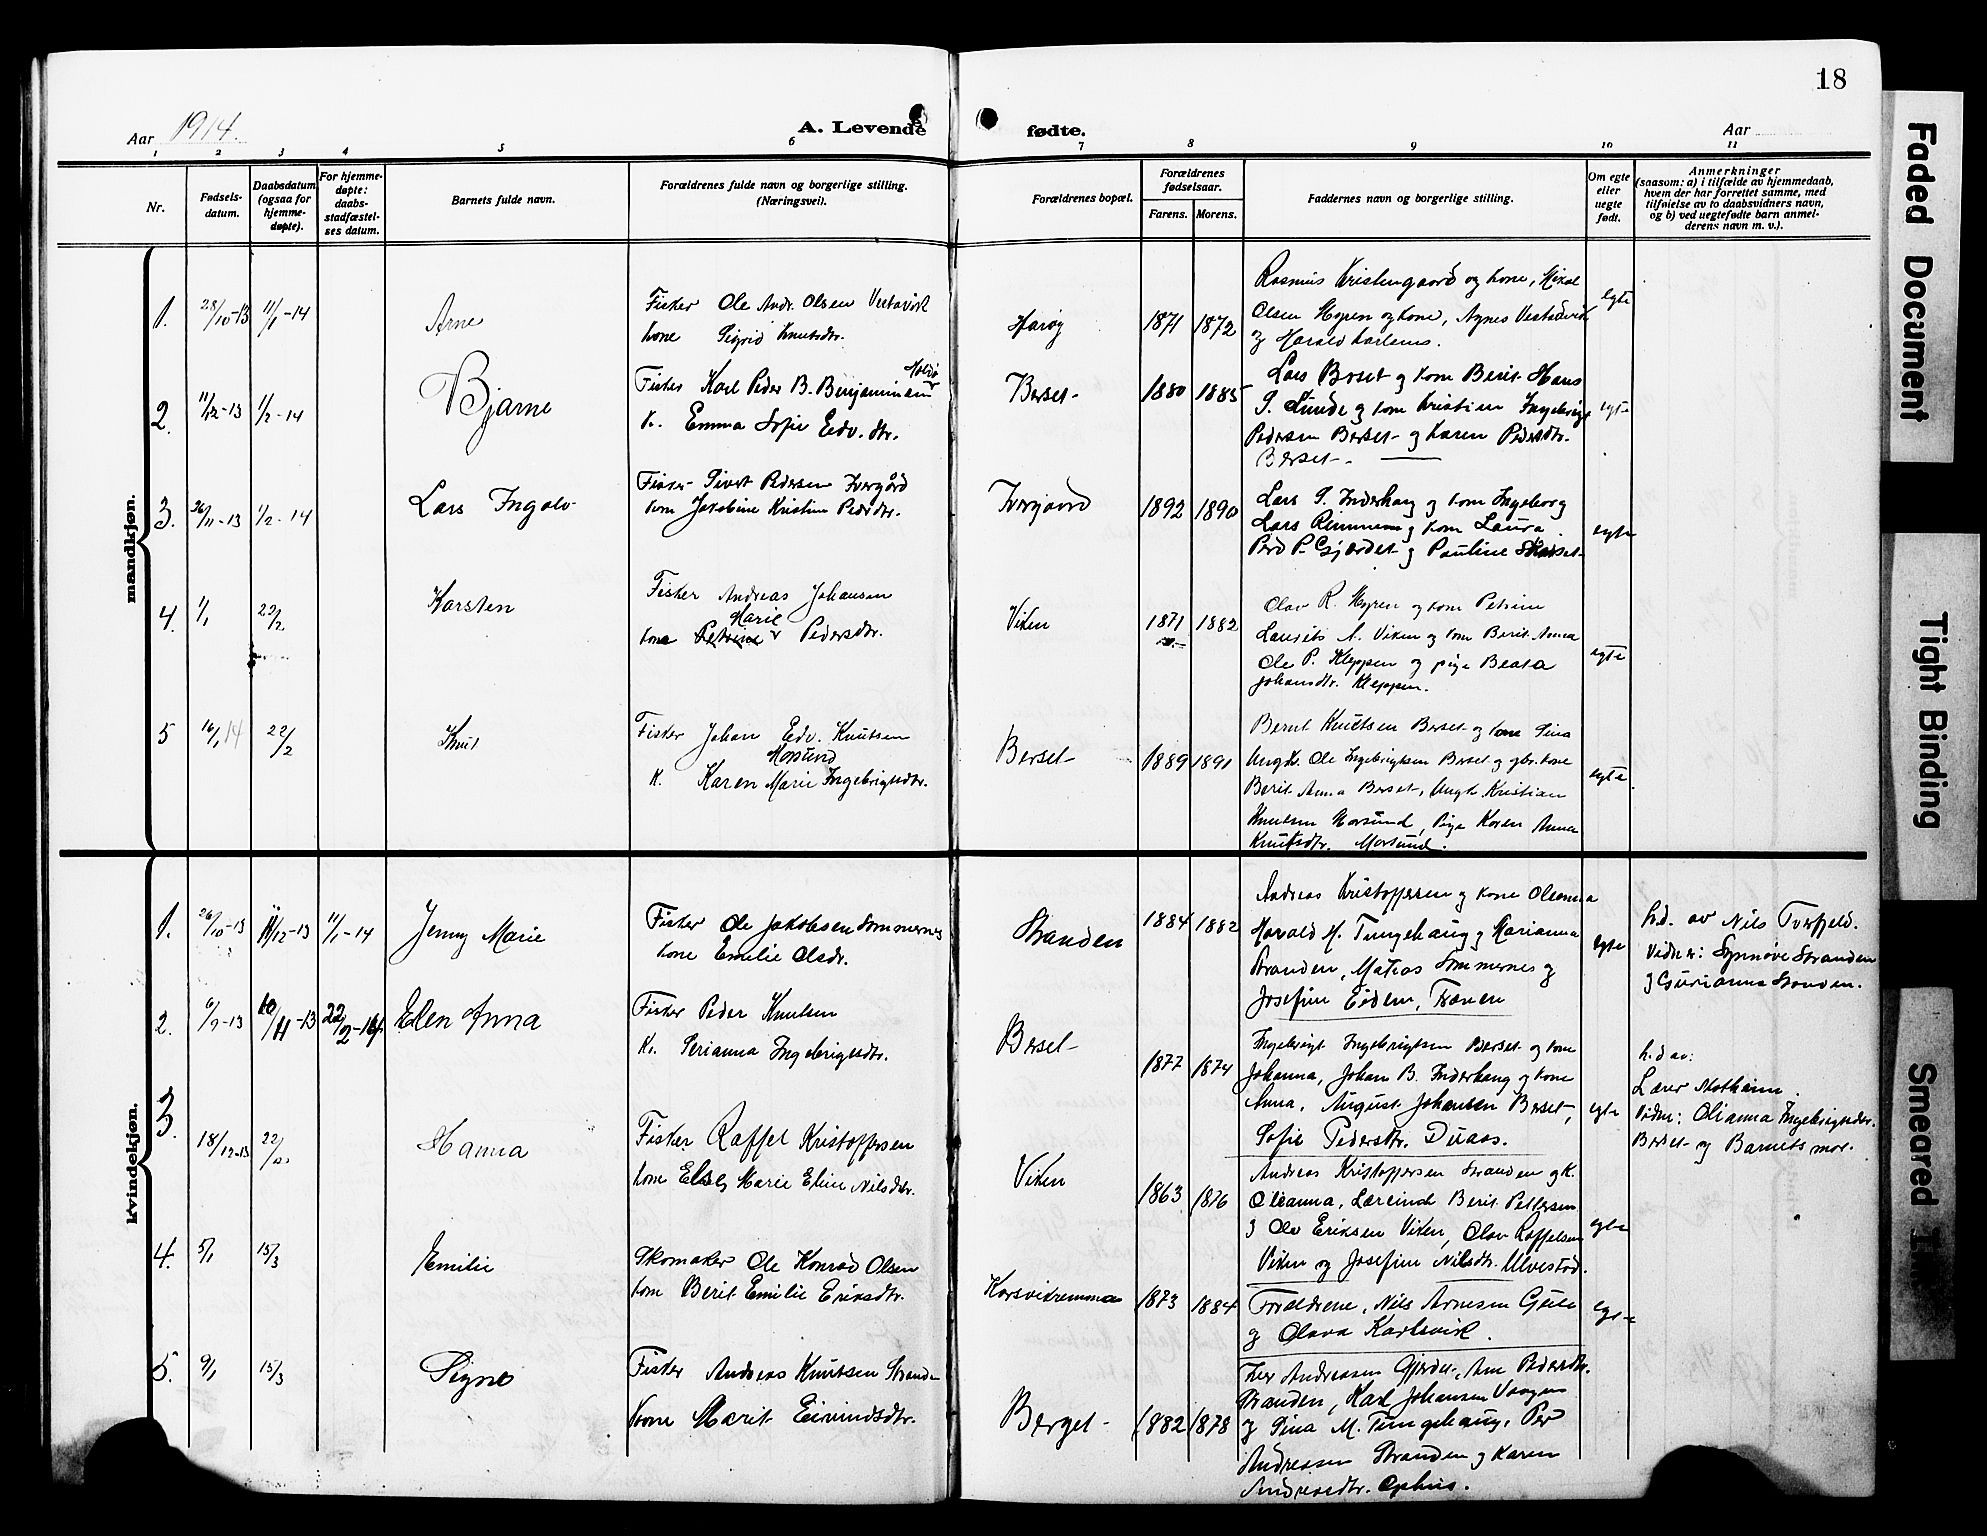 18
Aar 1914.
A. Levende fødte.
Aar
1 2 3 4 5 6 7 8 9 10 11
Nr.
Fødsels-
datum.
Daabsdatum
(ogsaa for
hjemme-
døpte).
For hjemme-
døpte:
daabs-
stadfæstel-
ses datum.
Barnets fulde navn.
Forældrenes fulde navn og borgerlige stilling.
(Næringsvei).
Forældrenes bopæl.
Forældrenes
fødselsaar.
Farens. Morens.
Faddernes navn og borgerlige stilling.
Om egte
eller
uegte
født.
Anmerkninger
(saasom: a) i tilfælde av hjemmedaab,
hvem der har forrettet samme, med
tilføielse av to daabsvidners navn,
og b) ved uegtefødte barn anmel-
derens navn m. v.).
mandkjøn.
1. 28/10-13 11/1-14 Arne
Fisker Ole Andr. Olsen
kone Sigrid Knutsdtr.
Harøy 1871 1872
Rasmus Kristengaard og kone, Mikal
Olsen Myren og kone, Agnes
og Harald Karlsens.
egte
2. 11/12-13 1/2-14 Bjarne
Fisker Karl Peder B. Benjaminsen
K. Emma Sofie Edv. dtr.
Berset 1880 1885
Lars Berset og kone Berit Hans
P. Sunde og kone Kristine Ingebrigt
Pedersen Berset og Karen Pedersdtr.
Berset
egte
3. 26/11-13 1/2-14 Lars Ingolv
Fisker Sivert Pedersen Ivergård
kone Jakobine Kristine Pedersdtr.
Ivergaard 1892 1890
Lars P. Inderhaug og kone Ingeborg
Lars Rimmen og kone Laura
Perd P. Gjerdet og Pauline
egte
4. 1/1 22/2 Karsten
Fisker Andreas Johansen
Marie
kone Petrine Pedersdtr.
Viken 1871 1882
Olav R. Myren og kone Petrine
Laurits A. Viken og kone Berit Anna
Ole P. Kleppen og pige Beata
Johansdtr. Kleppen.
egte
5 16/1 14 22/2 Knut
Fisker Johan Edv. Knutsen
Morsund
K. Karen Marie Ingebrigtsdtr.
Berset 1889 1891
Bernt Knutsen Berset og kone Gina
Ungk. Ole Ingebrigtsen Berset og gbr. kone
Berit Anna Berset, Ungk. Kristian
Knutsen Morsund, Pige Karen Anna
Knutsdtr. Morsund.
egte
kvindekjøn.
1. 26/10-13 11/12-13 11/1-14 Jenny Marie
Fisker Ole Jakobsen Sommernes
kone Emilie Olsdr.
Stranden 1884 1882
Andreas Kristoffersen og kone Oleanna
Harald M. Tungehaug og Marianna
Stranden, Matias Sommernes og
Josefine Eidem, Frænen
egte
h.d. av Nils Torfjeld.
Vidner: Synnøve Stranden
og Gurianna Stranden.
2. 6/9-13 10/11-13 22/2-14 Elen Anna
Fisker Peder Knutsen
K. Serianna Ingebrigtsdtr.
Berset 1877 1874
Ingebrigt Ingebrigtsen Berset og kone
Johanna, Johan B. Inderhaug og kone
Anna, August Johansen Berset,
Sofie Pedersdtr. Duaas.
egte
h.d av:
Lærer
Vidn: Olianna Ingebrigtsdtr.
Berset og Barnets mor.
3. 18/12-13 22/2. Hanna
Fisker Raffel Kristoffersen
kone Elsely Marie Eline Nilsdtr.
Viken 1863 1876
Andreas Kristoffersen Stranden og K.
Oleanna, Lærerinde Berit Pettersen
og Olav Eriksen Viken, Olav Raffelsen
Viken og Josefine Nilsdtr. Ulvestad.
egte
4. 5/1 15/3 Emilie
Skomaker Ole Konrad Olsen
kone Berit Emilie Eriksdtr.
Korsvikremma 1873 1884
Forældrene, Nils Arnesen Gule
og Olava Karlsvik.
egte
5. 9/1 15/3 Signe
Fisker Andreas Knutsen Stranden
Kone Marit Eivindsdtr.
Berget 1882 1878
Iver Andreasen Gjerdet, Ane Pedersdtr.
Stranden, Karl Johansen Vaagen
og Gina M. Tungehaug, Per
Andreasen Stranden og Karen
Andreasdtr. Ophus.
Faded Document
Tight Binding
Smeared